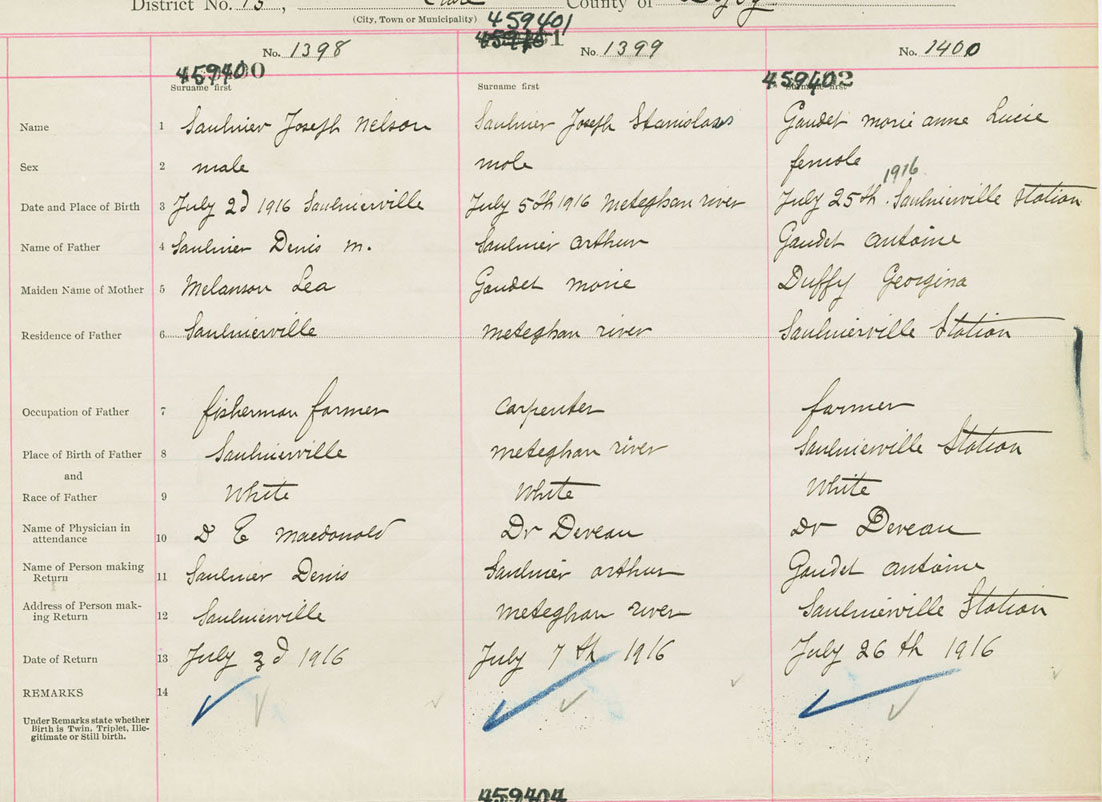 District No. 13, Clare County of Digby
(City, Town or Municipality)
459401
No. 1398 No. 1399 No. 1400
459400 459402
Surname first Surname first Surname first
Name 1 Saulnier Joseph Nelson Saulnier Joseph Stanislaus Gaudet marie anne Lucie
Sex 2 male male female
1916
Date and Place of Birth 3 July 2d 1916 Saulnierville July 5th 1916 Meteghan river July 25th Saulnierville Station
Name of Father 4 Saulnier Denis M. Saulnier arthur Gaudet antoine
Maiden Name of Mother 5 Melanson Lea Gaudet marie Duffy Georgina
Residence of Father 6 Saulnierville meteghan river Saulnierville Station
Occupation of Father 7 fisherman farmer carpenter farmer
Place of Birth of Father 8 Saulnierville meteghan river Saulnierville Station
and
Race of Father 9 White White White
Name of Physician in
attendance 10 D E macdonald Dr Deveau Dr Deveau
Name of Person making
Return 11 Saulnier Denis Saulnier arthur Gaudet antoine
Address of Person mak-
ing Return 12 Saulnierville meteghan river Saulnierville Station
Date of Return 13 July 3d 1916 July 7th 1916 July 26th 1916
REMARKS 14
Under Remarks state whether
Birth is Twin, Triplet, Ille-
gitimate or Still birth.
459404